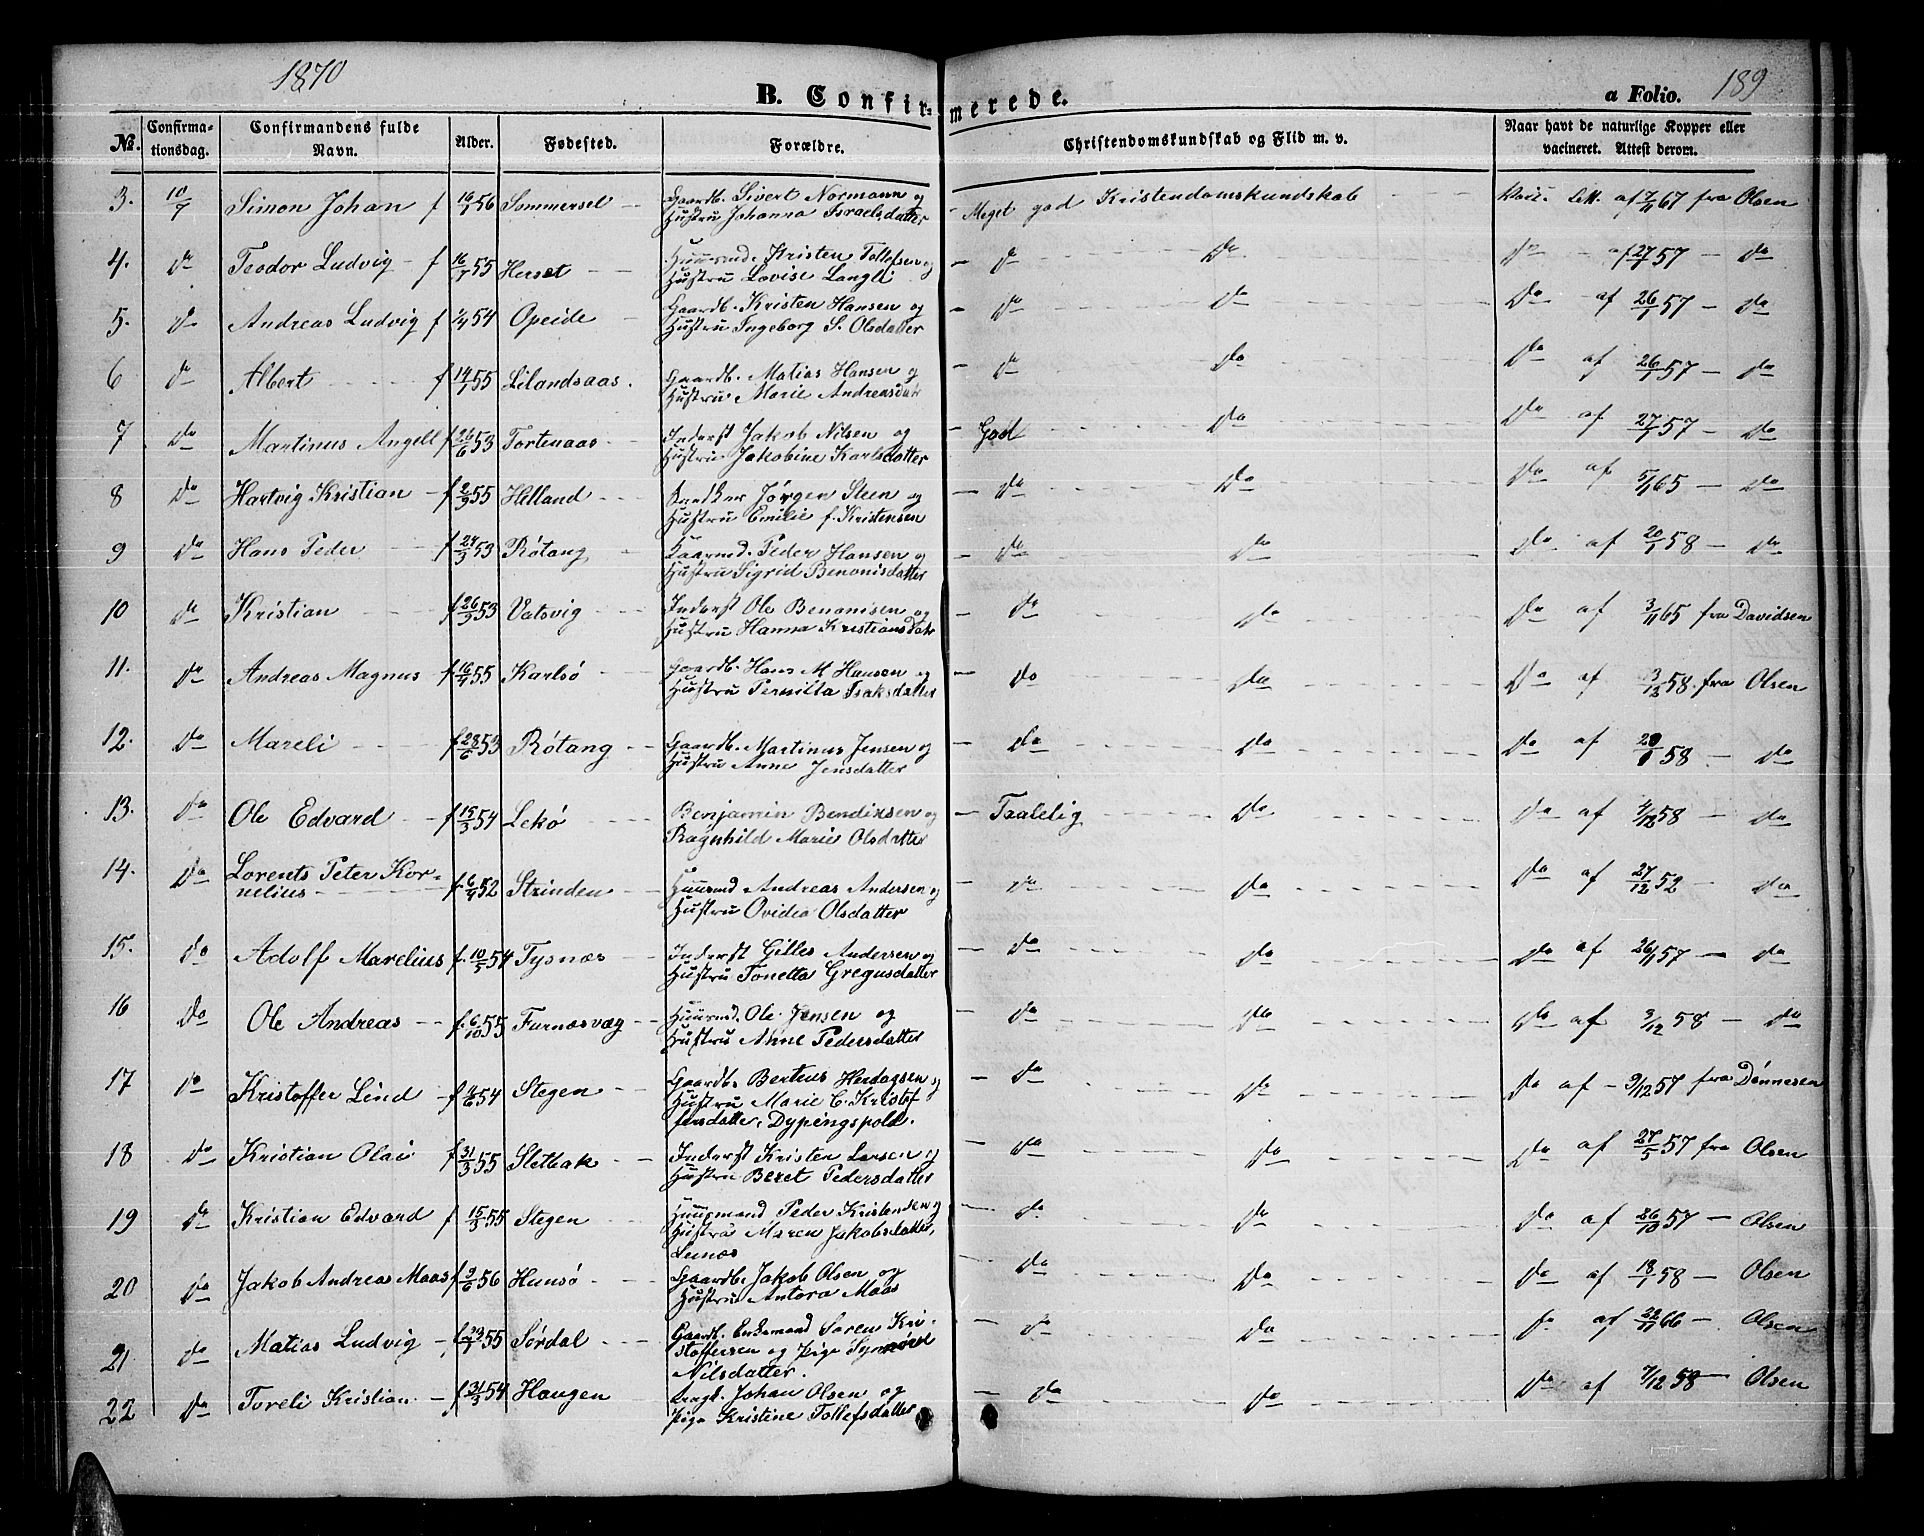 1870
189
B. Confirmerede.
a Folio.
No. Confirmationsdag. Confirmandens fulde Navn. Alder. Fødested. Forældre. Christendomskundskab og Flid m. v. Naar havt de naturlige Kopper eller vacineret. Attest derom.
3. 10/7 Simon Johan f 16/1 56 Sommersel Gaardb. Sivert Normann og Meget god Kristendomskundskab af 7/11 67 fra Olsen
Hustru Johanna Israelsdatter
4. Do Teodor Ludvig f 16/7 55 Herset Huusmd. Kristen Tollefsen og Do Do Do af 27/1 57 Do
Hustru Lovise Langli
5. Do Andreas Ludvig f 54 Opeide Gaardb. Kristen Hansen og Do Do Do af 26/1 57 Do
Hustru Ingeborg S. Olsdatter
6 Do Albert f 14/1 55 Lilandsaas. Gaardb. Matias Hansen og Do Do Do af 26/1 57 Do
Hustru Marie Andreasdatr
7 Do Martinus Angell f 26/6 53 Tortenaas Inderst Jakob Nilsen og God Do Do af 27/1 57 Do
Hustru Jakobine Karlsdatter
8 Do Hartvig Kristian f 2/9 55 Helland Jørgen Steen og Do Do Do af 5/1 65 Do
Hustru Emilie f. Kristensen
9 Do Hans Peder f 24/3 53 Røtang Kaarmd. Peder Hansen og Do Do Do af 20/1 58 Do
Hustru Sigrid Benonisdatter
10 Do Kristian f 26/3 53 Vatsvig Inderst Ole Benonisen og Do Do Do af 3/11 65 fra Davidsen
Hustru Hanna Kristiansdatr
11. Do Andreas Magnus f 16/7 55 Karlsø Gaardb. Hans M Hansen og Do Do Do af 3/12 58. fra Olsen
Hustru Pernilla Isaksdatter
12. Do Mareli f 28/6 53 Røtang Gaardb. Martinus Jensen og Do Do Do af 58 Do
Hustru Anne Jensdatter
13. Do Ole Edvard f 15/3 54 Lekø Benjamin Bendixsen og Taalelig Do Do af 4/12 58 Do
Ragnhild Marie Olsdatter
14. Do Lorents Peter Kor-
nelius f. 6/9 52 Strinden Huusmd Andreas Andersen og Do Do Do af 27/12 52 Do
Hustru Ovidea Olsdatter
15. Do Adolf Marelius f. 10/5 54 Tysnes Inderst Gilles Andersen og Do Do Do af 26/1 57 Do
Hustru Tonetta Gregusdatter
16 Do Ole Andreas f. 6/10 55 Furnæsvæg Huusmd. Ole Jensen og Do Do Do af 3/12 58 Do
Hustru Anne Pedersdatter
17 Do Kristoffer Lind f 54 Stegen Gaardb. Berteus Herdagsen og Do Do Do af 9/12 57 fra Dønnesen
Hustru Marie C. Kristof
fersdatter, Dypingspold.
18 Do Kristian Olai f 31/3 55 Sletbak Inderst Kristen Larsen og Do Do Do af 27/5 57 fra Olsen
Hustru Beret Pedersdatter
19 Do Kristian Edvard f 15/3 55 Stegen Huusmand Peder Kristensen og Do Do Do af 26/10 57 Olsen
Hustru Maren Jakobsdatter,
20 Do Jakob Andreas Maas f 9/6 56 Hunsø Gaardb. Jakob Olsen og Do Do Do af 18/1 58 Olsen
Hustru Antora Maas
21 Do Matias Ludvig f 55 Sørdal Gaardb. Enkemand Søren Kri- Do Do Do af 22/11 66 Olsen
stoffersen og Pige Synnøve
Nilsdatter.
22 Do Toreli Kristian f 21/3 54 Haugen Johan Olsen og Do Do Do af 7/12 58 Olsen
Pige Kristine Tollefsdatter